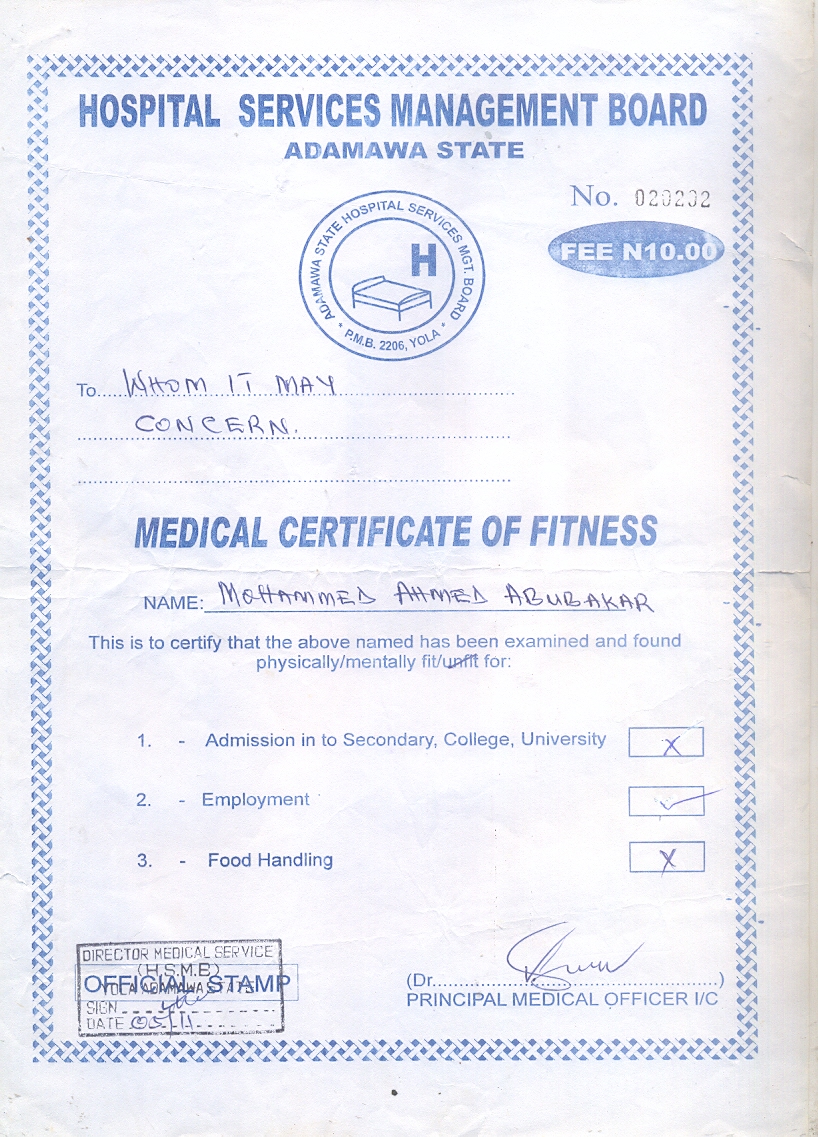 HOSPITAL SERVICES MANAGEMENT BOARD
ADAMAWA STATE
No. 020202
FEE N10.00
ADAMAWA STATE HOSPITAL SERVICES MGT. BOARD
H
* P.M.B. 2206, YOLA *
To WHOM IT MAY
CONCERN.
MEDICAL CERTIFICATE OF FITNESS
NAME: MOHAMMED AHMED ABUBAKAR
This is to certify that the above named has been examined and found
physically/mentally fit/unfit for:
1. - Admission in to Secondary, College, University X
2. - Employment ✓
3. - Food Handling X
DIRECTOR MEDICAL SERVICE
(H.S.M.B)
OFFICIAL STAMP
YOLA ADAMAWA STATE
SIGN
DATE
(Dr.....................................................)
PRINCIPAL MEDICAL OFFICER I/C